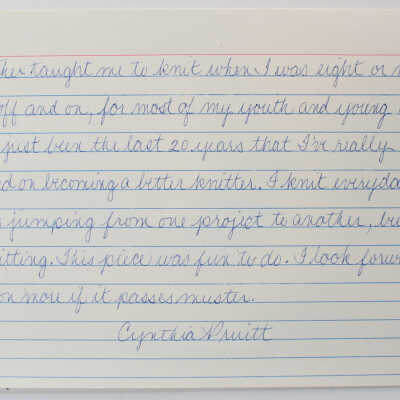 her taught me to knit when I was eight or n
off and on, for most of my youth and young
just been the last 20 years that I've really
ed on becoming a better knitter. I knit everyda
s jumping from one project to another, bu
itting. This piece was fun to do. I look forw
on more if it passes muster.
Cynthia Pruitt